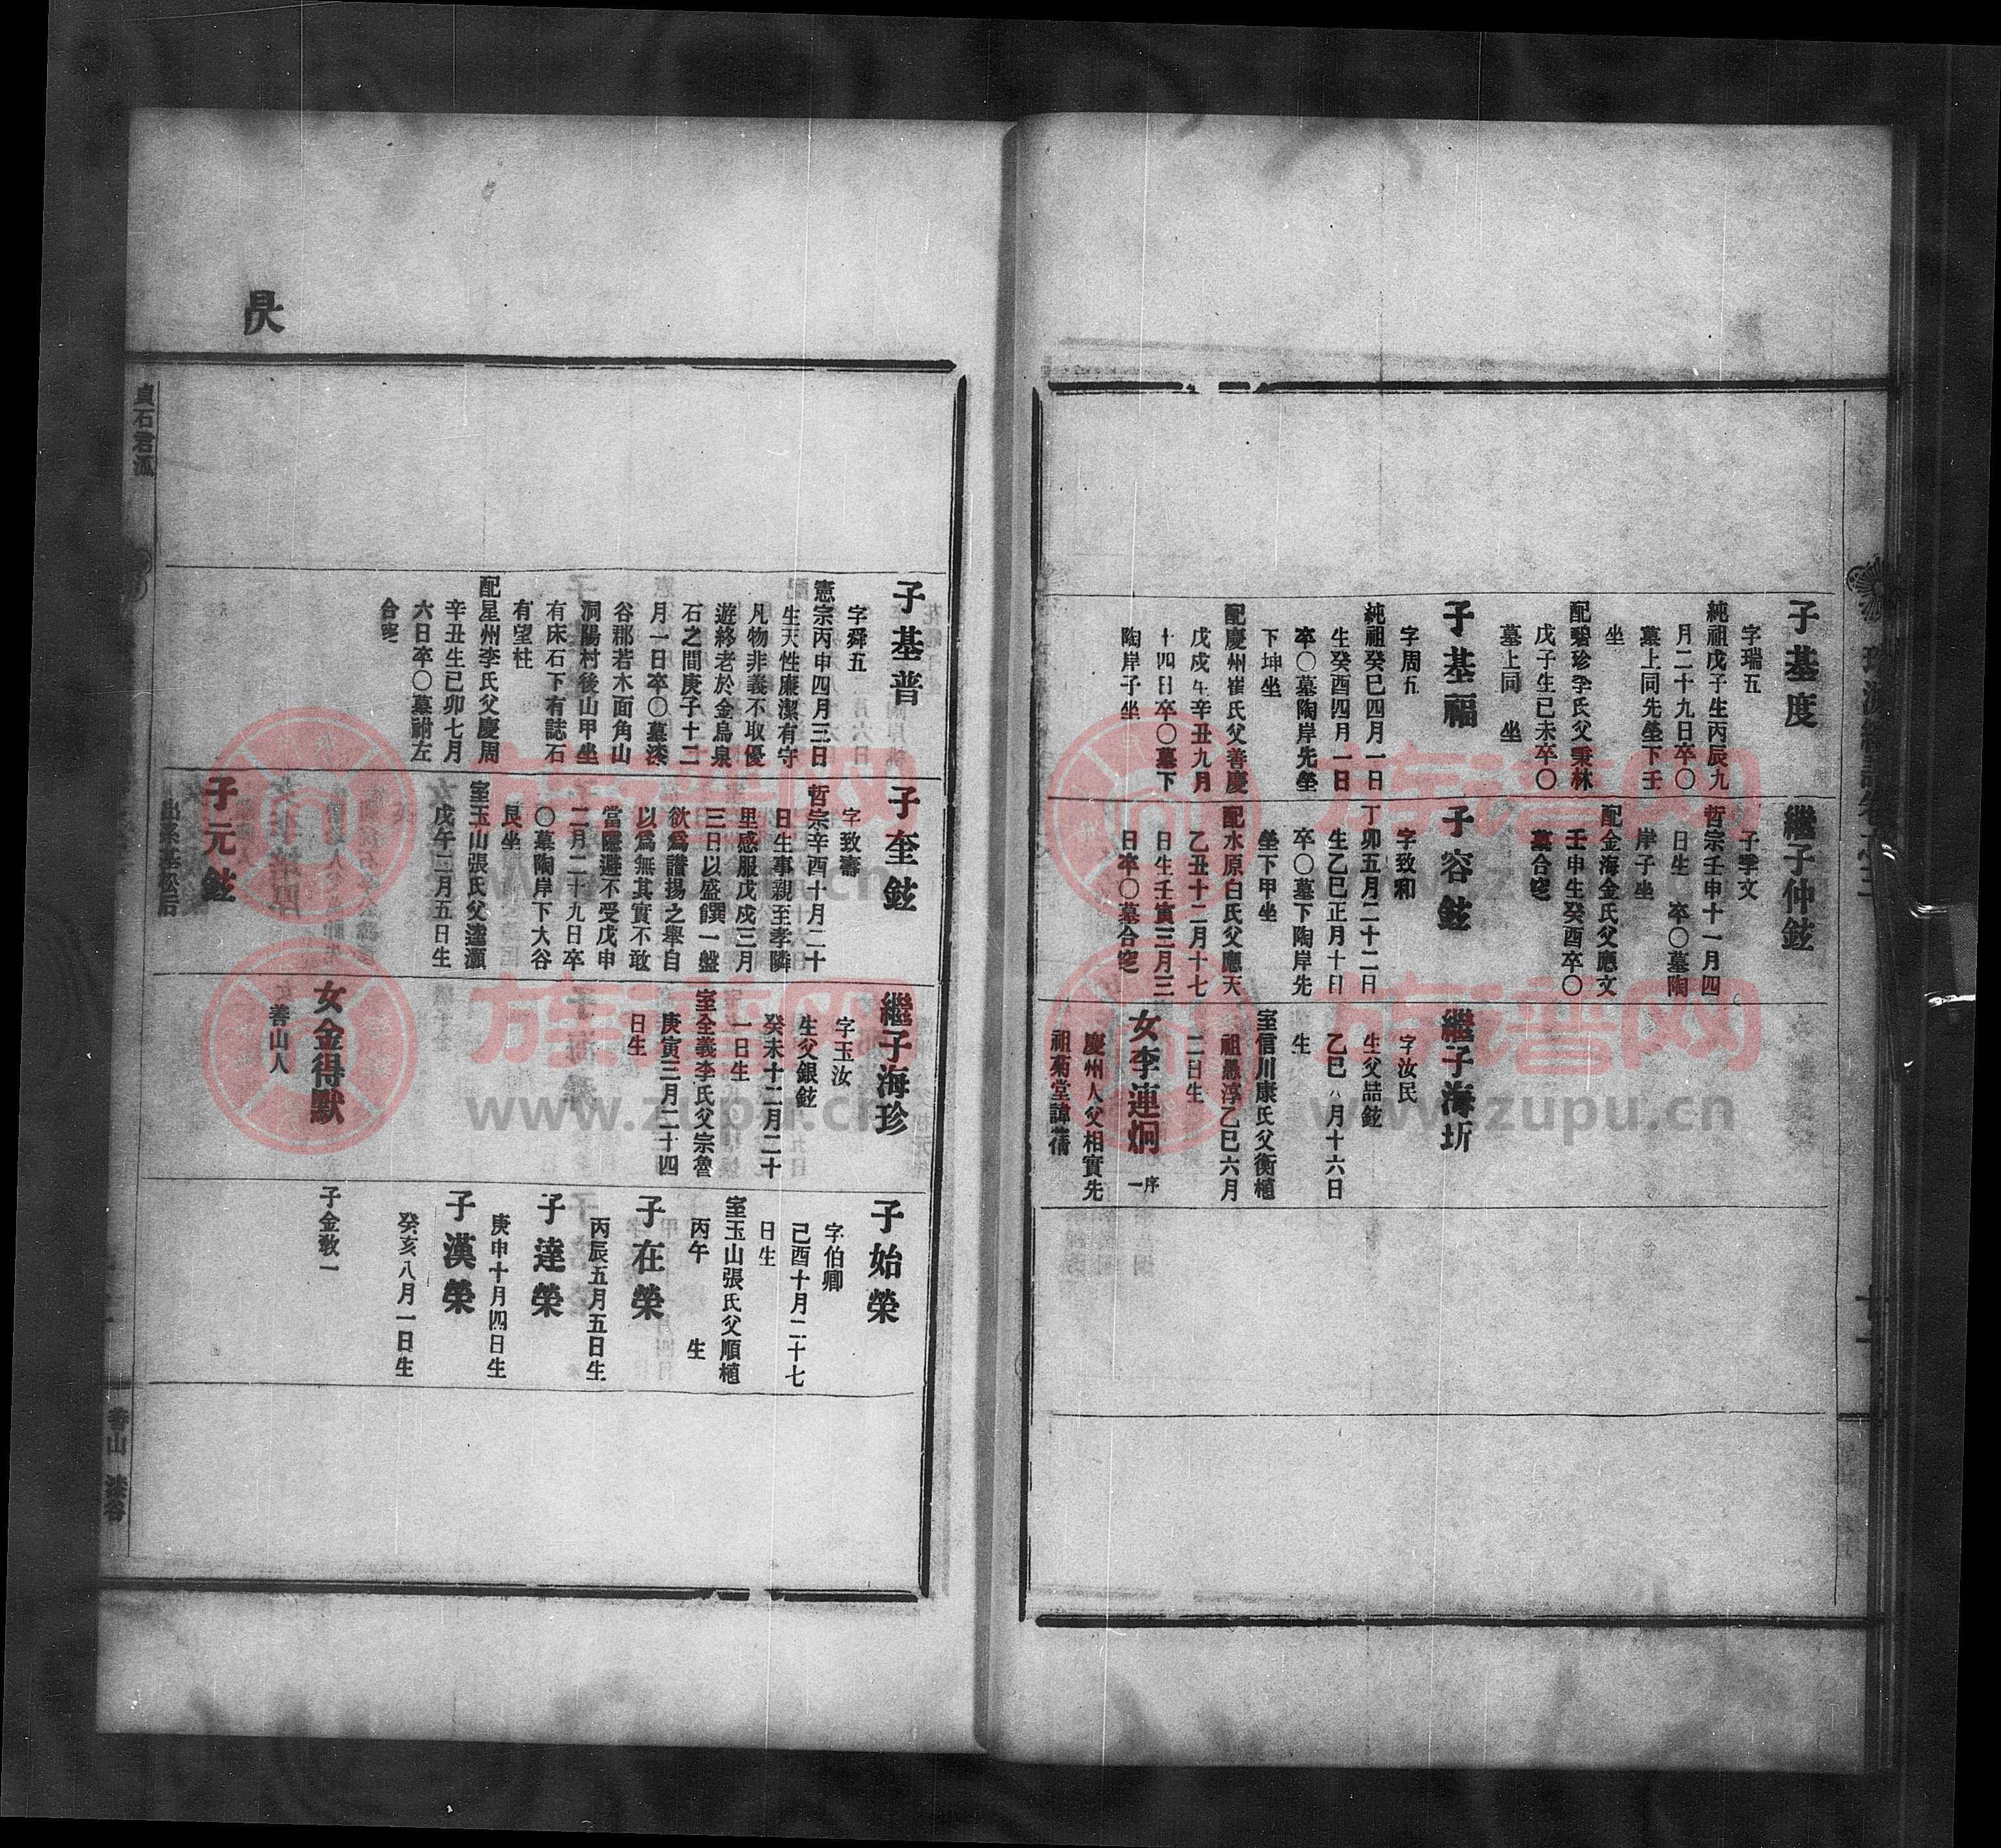 子基度
字瑞五
純祖戊子生丙辰九
月二十九日卒〇
墓上同先塋下壬
坐
配碧珍李氏父秉林
戊子生已未卒〇
墓上同　坐
子基福
字周五
純祖癸巳四月一日
生癸酉四月一日
卒〇墓陶岸先塋
下坤坐
配慶州崔氏父善慶
戊戌生辛丑九月
十四日卒〇墓下
陶岸子坐
繼子仲鉉
字季文
哲宗壬申十一月四
日生　卒〇墓陶
岸子坐
配金海金氏父應文
壬申生癸酉卒〇
墓合窆
子容鉉
字致和
丁卯五月二十二日
生乙巳正月十日
卒〇墓下陶岸先
塋下甲坐
配水原白氏父應天
乙丑十二月十七
日生壬寅三月三
日卒〇墓合窆
繼子海圻
字汝民
生父喆鉉
乙巳八月十六日
生
室信川康氏父衡植
祖愚淳乙巳六月
二日生
女李連炯 序一
慶州人父相實先
祖菊堂諱蒨
貞石君派
子基普
字舜五
憲宗丙申四月三日
生天性廉潔有守
凡物非義不取優
遊終老於金烏泉
石之間庚子十二
月一日卒〇墓漆
谷郡若木面角山
洞陽村後山甲坐
有床石下有誌石
有望柱
配星州李氏父慶周
辛丑生已卯七月
六日卒〇墓祔左
合窆
子奎鉉
字致壽
哲宗辛酉十月二十
日生事親至孝隣
里感服戊戌三月
三日以盛饌一盤
欲爲讃揚之舉自
以爲無其實不敢
當隱避不受戊申
二月二十九日卒
〇墓陶岸下大谷
艮坐
室玉山張氏父達灝
戊午二月五日生
子元鉉
出系基松后
繼子海珍
字玉汝
生父銀鉉
癸未十二月二十
一日生
室全義李氏父宗魯
庚寅三月二十四
日生
女金得默
善山人
子始榮
字伯卿
己酉十月二十七
日生
室玉山張氏父順植
丙午　生
子在榮
丙辰五月五日生
子達榮
庚申十月四日生
子漢榮
癸亥八月一日生
子金敎一
善山 漆谷
族谱网
www.zupu.cn
族谱网
www.zupu.cn
族谱网
www.zupu.cn
族谱网
www.zupu.cn